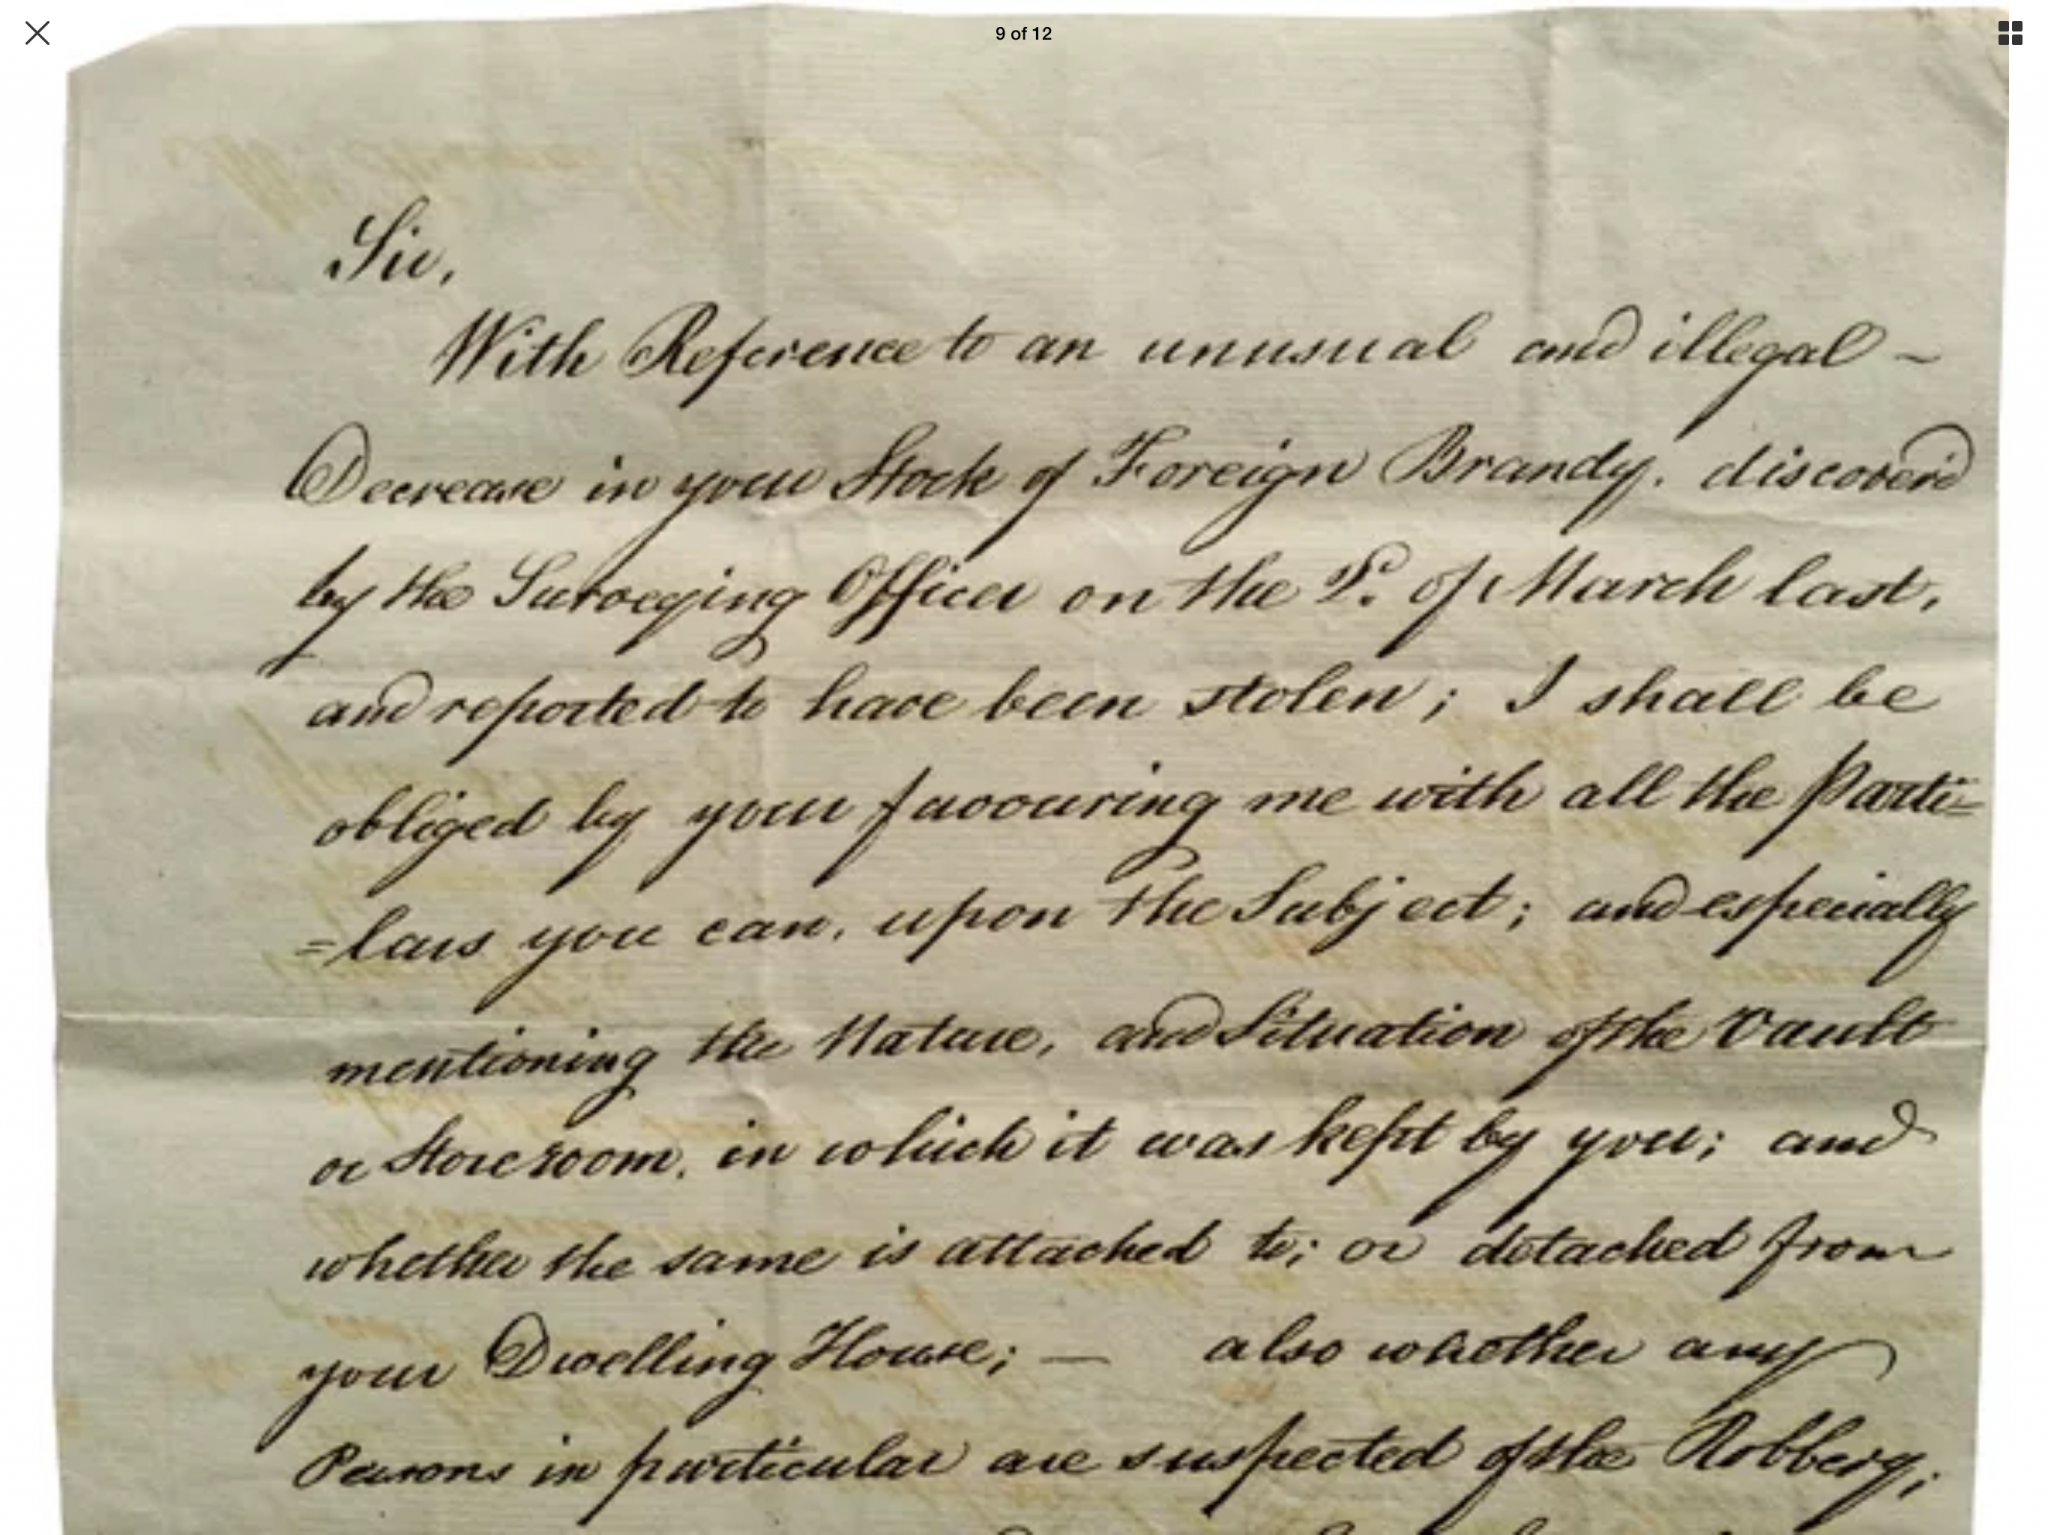 9 of 12
Sir,
With Reference to an unusual and illegal ~
Decrease in your Stock of Foreign Brandy. discover'd
by the Surveying Officer on the of March last,
and reported to have been stolen; I shall be
obliged by your favouring me with all the Parti=
=lars you can, upon the Subject; and especially
mentioning the Nature, and Situation of the Vault
or Storeroom, in which it was kept by you; and
whether the same is attached to; or detached from
your Dwelling House; — also whether any
Persons in particular are suspected of the Robbery;